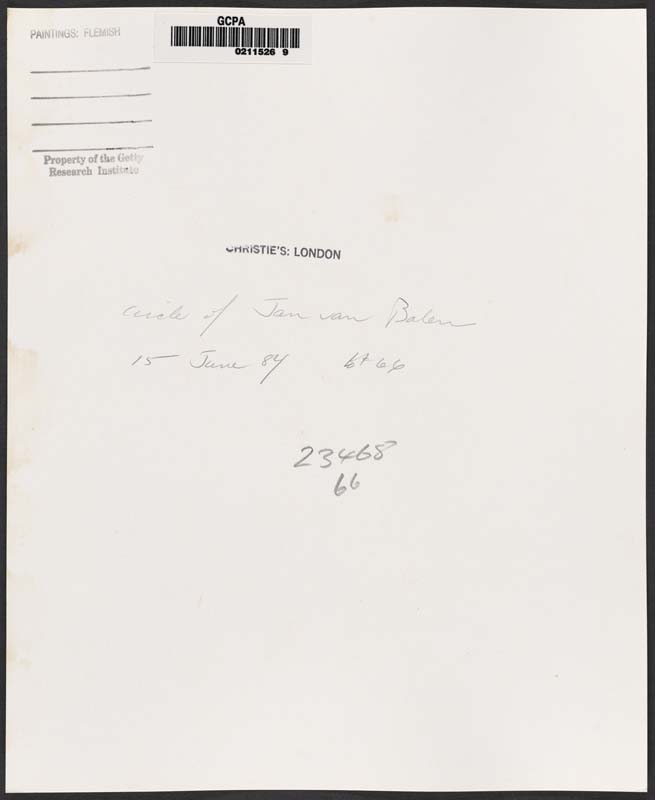 PAINTINGS: FLEMISH
GCPA
0211526 9
Property of the Getty
Research Institute
CHRISTIE'S: LONDON
circle of Jan van Balen
15 June 84 lot 66
23468
66